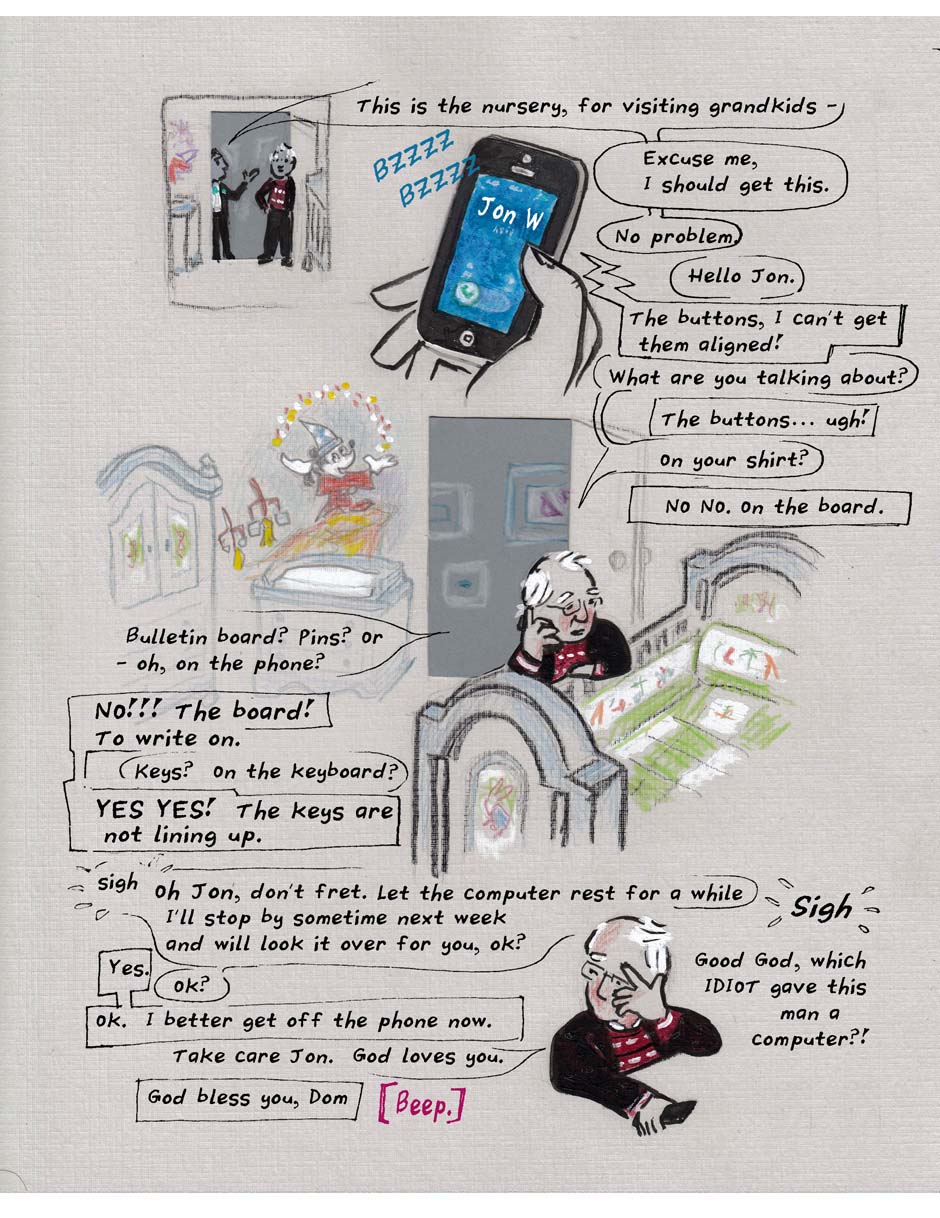 This is the nursery, for visiting grandkids -
BZZZZ
BZZZZ
Jon W
Excuse me,
I should get this.
No problem.
Hello Jon.
The buttons, I can't get
them aligned!
What are you talking about?
The buttons... ugh!
On your shirt?
No No. On the board.
Bulletin board? Pins? Or
- oh, on the phone?
NO!!! The board!
To write on.
Keys? On the keyboard?
YES YES! The keys are
not lining up.
sigh
Oh Jon, don't fret. Let the computer rest for a while
I'll stop by sometime next week
and will look it over for you, ok?
Sigh
Good God, which
IDIOT gave this
man a
computer?!
Yes.
Ok?
Ok. I better get off the phone now.
Take care Jon. God loves you.
God bless you, Dom
[Beep.]